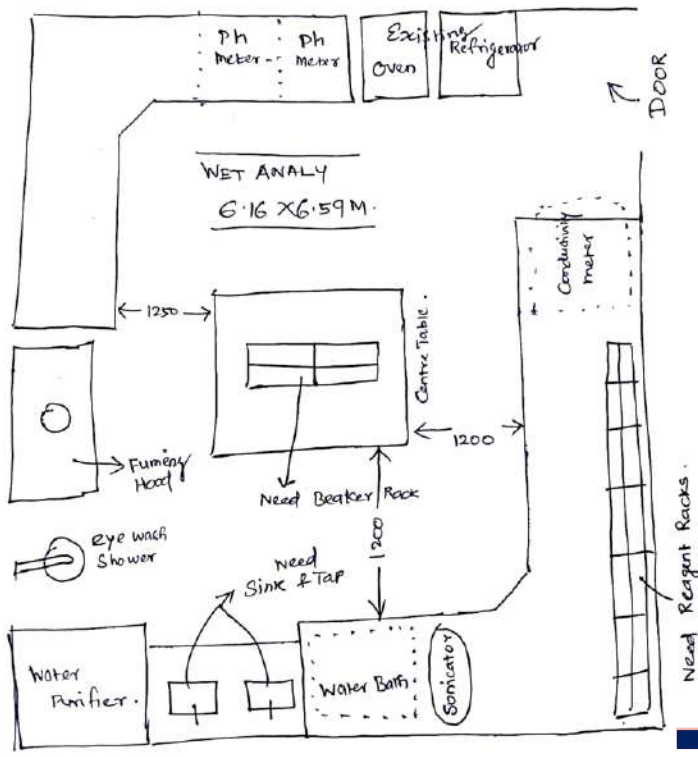 Ph
meter
Ph
meter
Existing
Refrigerator
Oven
DOOR
WET ANALY
6.16 X 6.59 M.
Conductivity
meter
1250
Centre Table.
1200
Fuming
Hood
Need Beaker Rack
1200
eye wash
Shower
Need
Sink & Tap
Need Reagent Racks.
Water
Purifier.
Water Bath
Sonicator